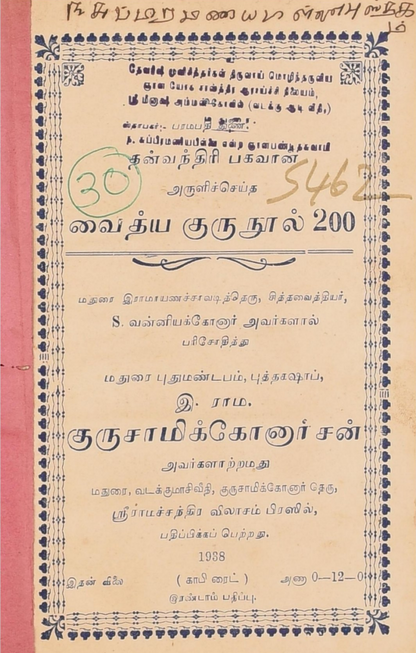 தேவரிஷி முனிசித்தர்கள் திருவாய் மொழிந்தருளிய
ஞான யோக சாஸ்திர ஆராய்ச்சி நிலையம்,
ஸ்ரீ மீனாக்ஷி அம்மன்கோவில் (வடக்கு ஆடி வீதி,)
ஸ்தாபகர்:-
தன்வந்திரி பகவான்
30
அருளிச்செய்த
5462
வைத்ய குருநூல் 200
மதுரை இராமாயணச்சாவடித்தெரு, சித்தவைத்தியர்,
S. வன்னியக்கோனார் அவர்களால்
பரிசோதித்து
மதுரை புதுமண்டபம், புத்தகஷாப்,
இ. ராம.
குருசாமிக்கோனார் சன்
அவர்களாற்றமது
மதுரை, வடக்குமாசிவீதி, குருசாமிக்கோனார் தெரு,
ஸ்ரீராமச்சந்திர விலாசம் பிரஸில்,
பதிப்பிக்கப் பெற்றது.
1938
இதன் விலை ( காபி ரைட் ) அணா 0—12—0
இரண்டாம் பதிப்பு.